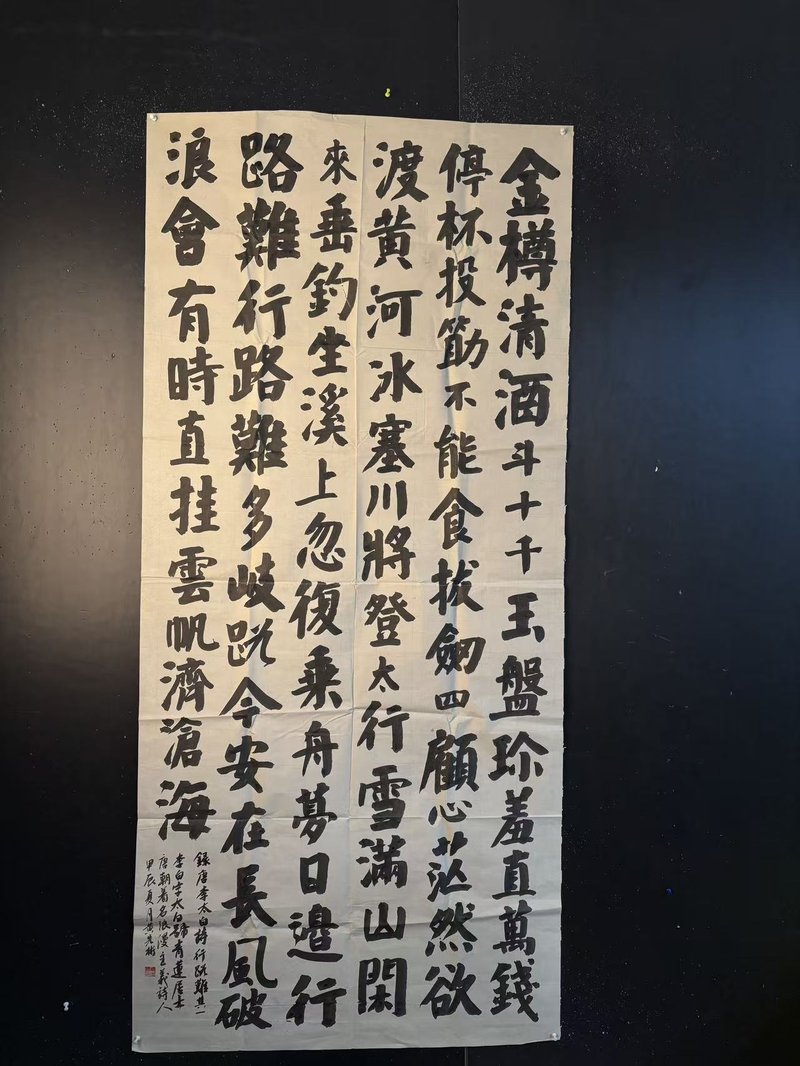 金樽清酒斗十千玉盤珎羞直萬錢
停杯投筯不能食拔劍四顧心茫然欲
渡黄河冰塞川將登太行雪滿山閑
來垂釣坐溪上忽復乗舟夢日邊行
路難行路難多岐路今安在長風破
浪會有時直挂雲帆濟滄海
錄唐李太白詩行路難其一
李白字太白號青蓮居士
唐朝着名浪漫主義詩人
甲辰夏月黄